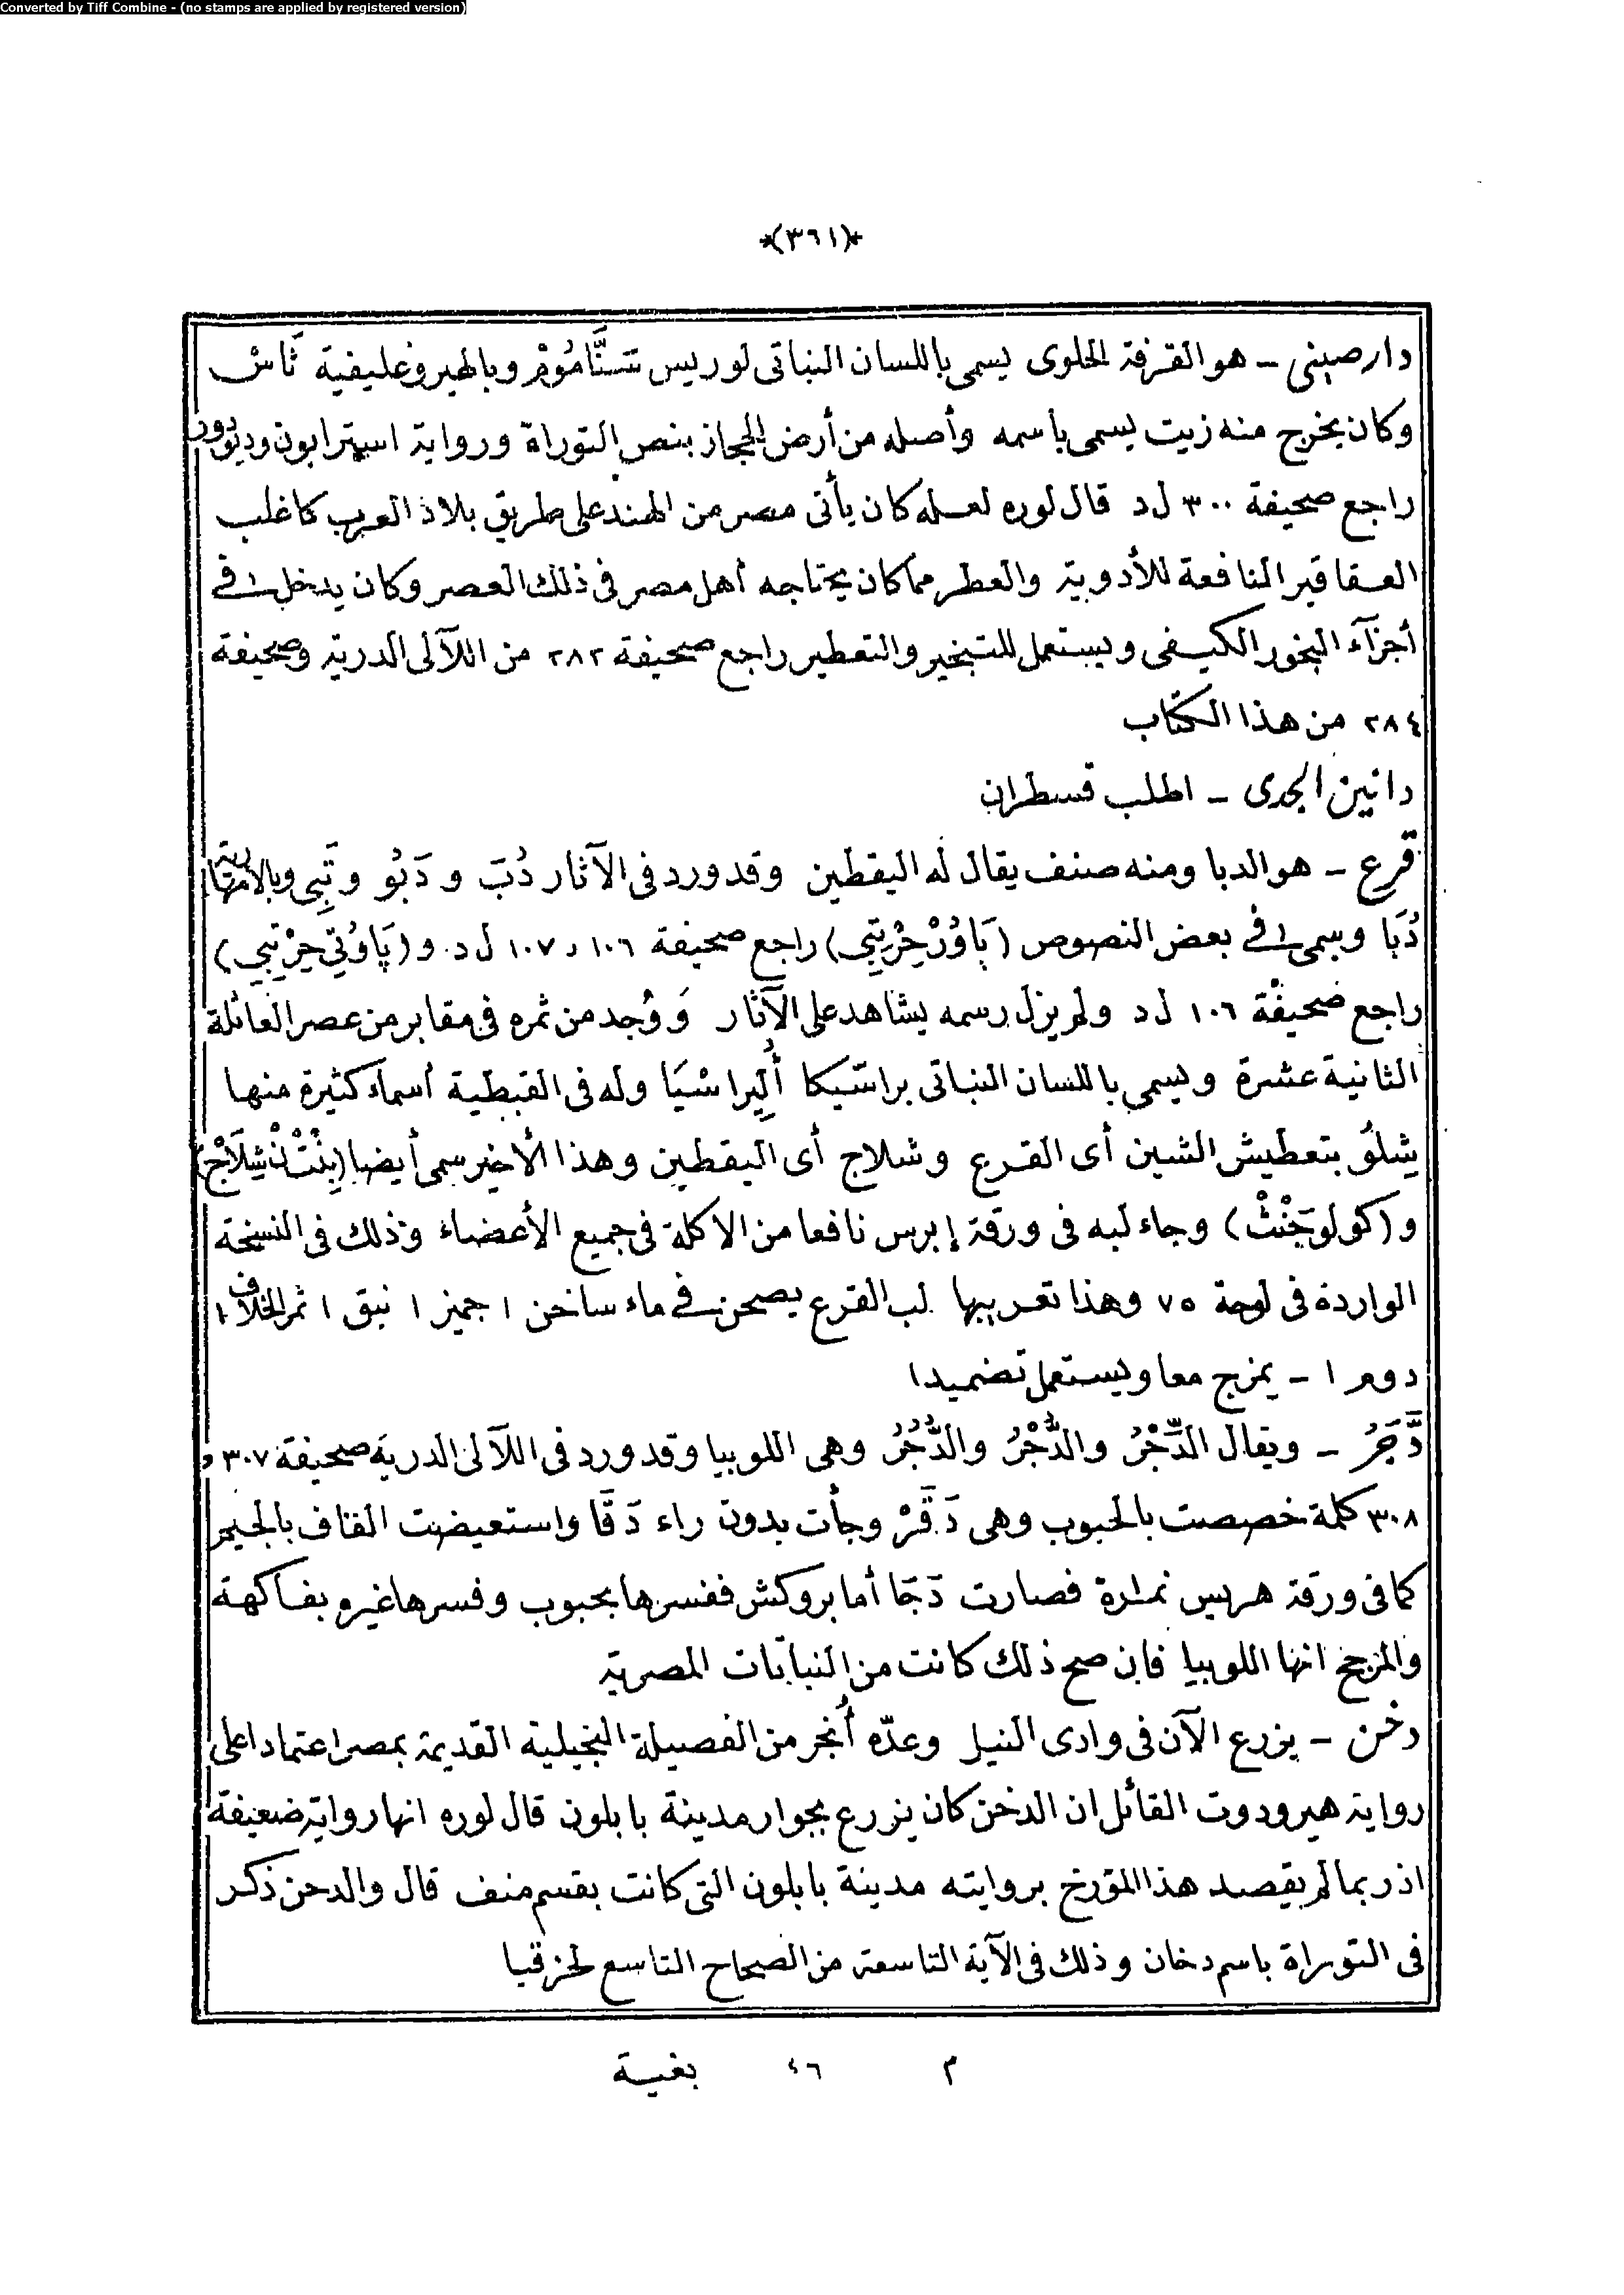 Converted by Tiff Combine - (no stamps are applied by registered version)
*(٣٦١)*
دارصينى – هو القرفة الحلوى يسمى باللسان النباتى لوريس سنَّامُومْ وبالهيروغليفية ثَاسْ
وكان يخرج منه زيت يسمى باسمه وأصله من أرض الحجاز بنص التوراة ورواية استرابون وديودور
راجع صحيفة ٣٠٠ ل د قال لوره لعله كان يأتى مصر من الهند على طريق بلاد العرب كاغلب
العقاقير النافعة للأدوية والعطر مما كان يحتاجه أهل مصر فى ذلك العصر وكان يدخل فى
أجزآء البخور الكيفى ويستعمل للتبخير والتعطير راجع صحيفة ٢٨٢ من اللآلى الدرية وصحيفة
٢٨٤ من هذا الكتاب
دانين الجدى – اطلب قسطران
قرع – هو الدبا ومنه صنف يقال له اليقطين وقد ورد فى الآثار دُبَ و دَبُو و تَبِى وبالامهرية
دُبَا وسمى فى بعض النصوص (بَاوُرْخِرْبِتِي) راجع صحيفة ١٠٦ و ١٠٧ ل د و (پَاوُتِّي حِرْتِبِي)
راجع صحيفة ١٠٦ ل د ولم يزل رسمه يشاهد على الآثار وَوُجد من ثمره فى مقابر من عصر العائلة
الثانية عشرة ويسمى باللسان النباتى براسّيكا أُلِيراسْيَا وله فى القبطية أسماء كثيرة منها
شِلُو بتعطيش الشين أى القرع وشلاج أى اليقطين وهذا الأخير سمى أيضا (بِنُتْنْ شِلَاجْ)
و (كولوجَنْثْ) وجاء لبه فى ورقة إبرس نافعا من الاكلة فى جميع الأعضاء وذلك فى النسخة
الواردة فى لوحة ٧٥ وهذا تعريبها لب القرع يصحن فى ماء ساخن ١ جميز ١ نبق ١ ثمر الخلاف ١
دوم ١ – يمزج معا ويستعمل تضميدا
دَّجَرُ – ويقال الدِّجْرُ والدُّجْرُ والدُّجُرُ وهى اللوبيا وقد ورد فى اللآلى الدرية صحيفة ٣٠٧ و
٣٠٨ كلمة خصصت بالحبوب وهى دَقَرْ وجأت بدون راء دَقَا واستعيضت القاف بالجيم
كما فى ورقة هريس نمرة فصارت دَجَا أما بروكش ففسرها بحبوب وفسرها غيره بفاكهة
والمرجح انها اللوبيا فإن صح ذلك كانت من النباتات المصرية
دخن – يزرع الآن فى وادى النيل وعدّه أُنجر من الفصيلة النجيلية القديمة بمصر اعتمادا على
رواية هيرودوت القائل ان الدخن كان يزرع بجوار مدينة بابلون قال لوره انها رواية ضعيفة
اذ ربما لم يقصد هذا المؤرخ بروايته مدينة بابلون التى كانت بقسم منف قال والدحن ذكر
فى التوراة باسم دخان وذلك فى الآية التاسعة من الصحاح التاسع لحزقيا
م ٤٦ بغية